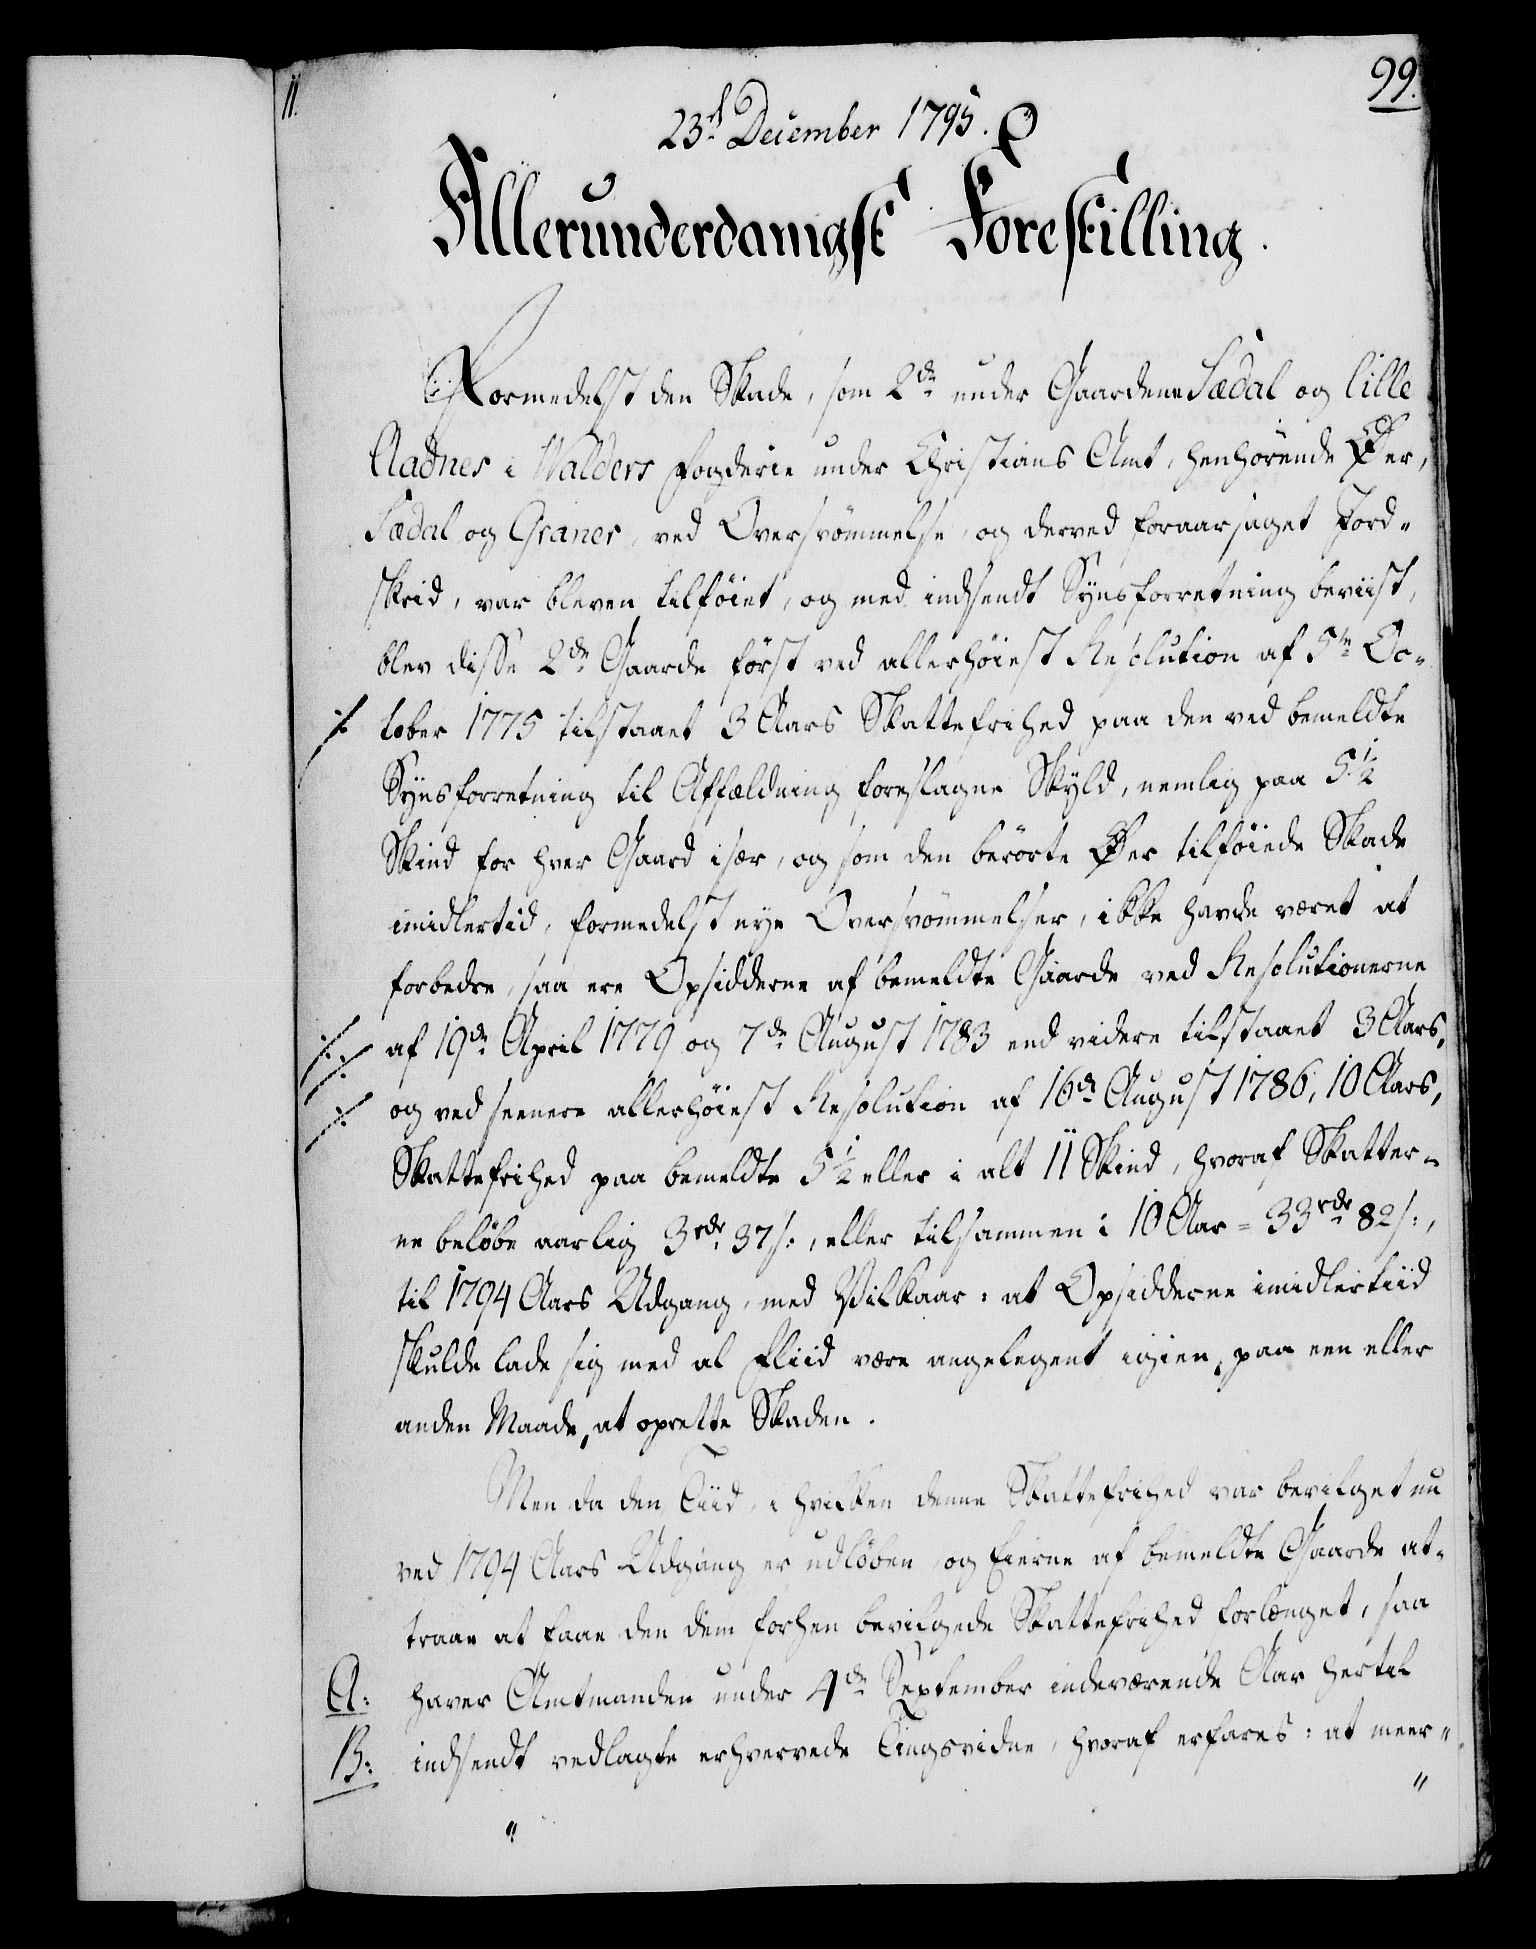 11.
99.
23d December 1795.
Allerunderdanigst Forestilling.
Formedelst den Skade, som 2de under Gaardene Sædal og lille
Aadnes i Walders Fogderie under Christians Amt, henhørende Øer,
Sædal og Granes, ved Oversvömmelse, og derved foraarsaget Jord-
skrid, var bleven tilföiet, og med indsendt Synsforretning beviist,
blev disse 2de Gaarde först ved allerhöiest Resolution af 5te Oc-
./. tober 1775 tilstaaet 3 Aars Skattefrihed paa den ved bemeldte
Synsforretning til Affældning foreslagne Skyld, nemlig paa 5½
Skind for hver Gaard især, og som den berörte Øer tilföiede Skade
imidlertid, formedelst nye Oversvömmelser, ikke havde været at
forbedre, saa ere Opsidderne af bemeldte Gaarde ved Resolutionerne
./. ./. af 19de April 1779 og 7de August 1783 end videre tilstaaet 3 Aars,
./. og ved seenere allerhöiest Resolution af 16de August 1786, 10 Aars,
Skattefrihed paa bemeldte 5½ eller i alt 11 Skind, hvoraf Skatter-
ne beløbe aarlig 3rdr 37 s:, eller tilsammen i 10 Aar = 33rdr 82 s:,
til 1794 Aars Udgang, med Vilkaar: at Opsidderne imidlertiid
skulde lade sig med al Fliid være angelegent igien, paa een eller
anden Maade, at oprette Skaden.
Men da den Tiid, i hvilken denne Skattefrihed var bevilget nu
ved 1794 Aars Udgang er udlöben og Eierne af bemeldte Gaarde at-
traae at faae den dem forhen bevilgede Skattefrihed forlænget, saa
A: haver Amtmanden under 4de September indeværende Aar hertil
B: indsendt vedlagte erhvervede Tingsvidne, hvoraf erfares: at meer-